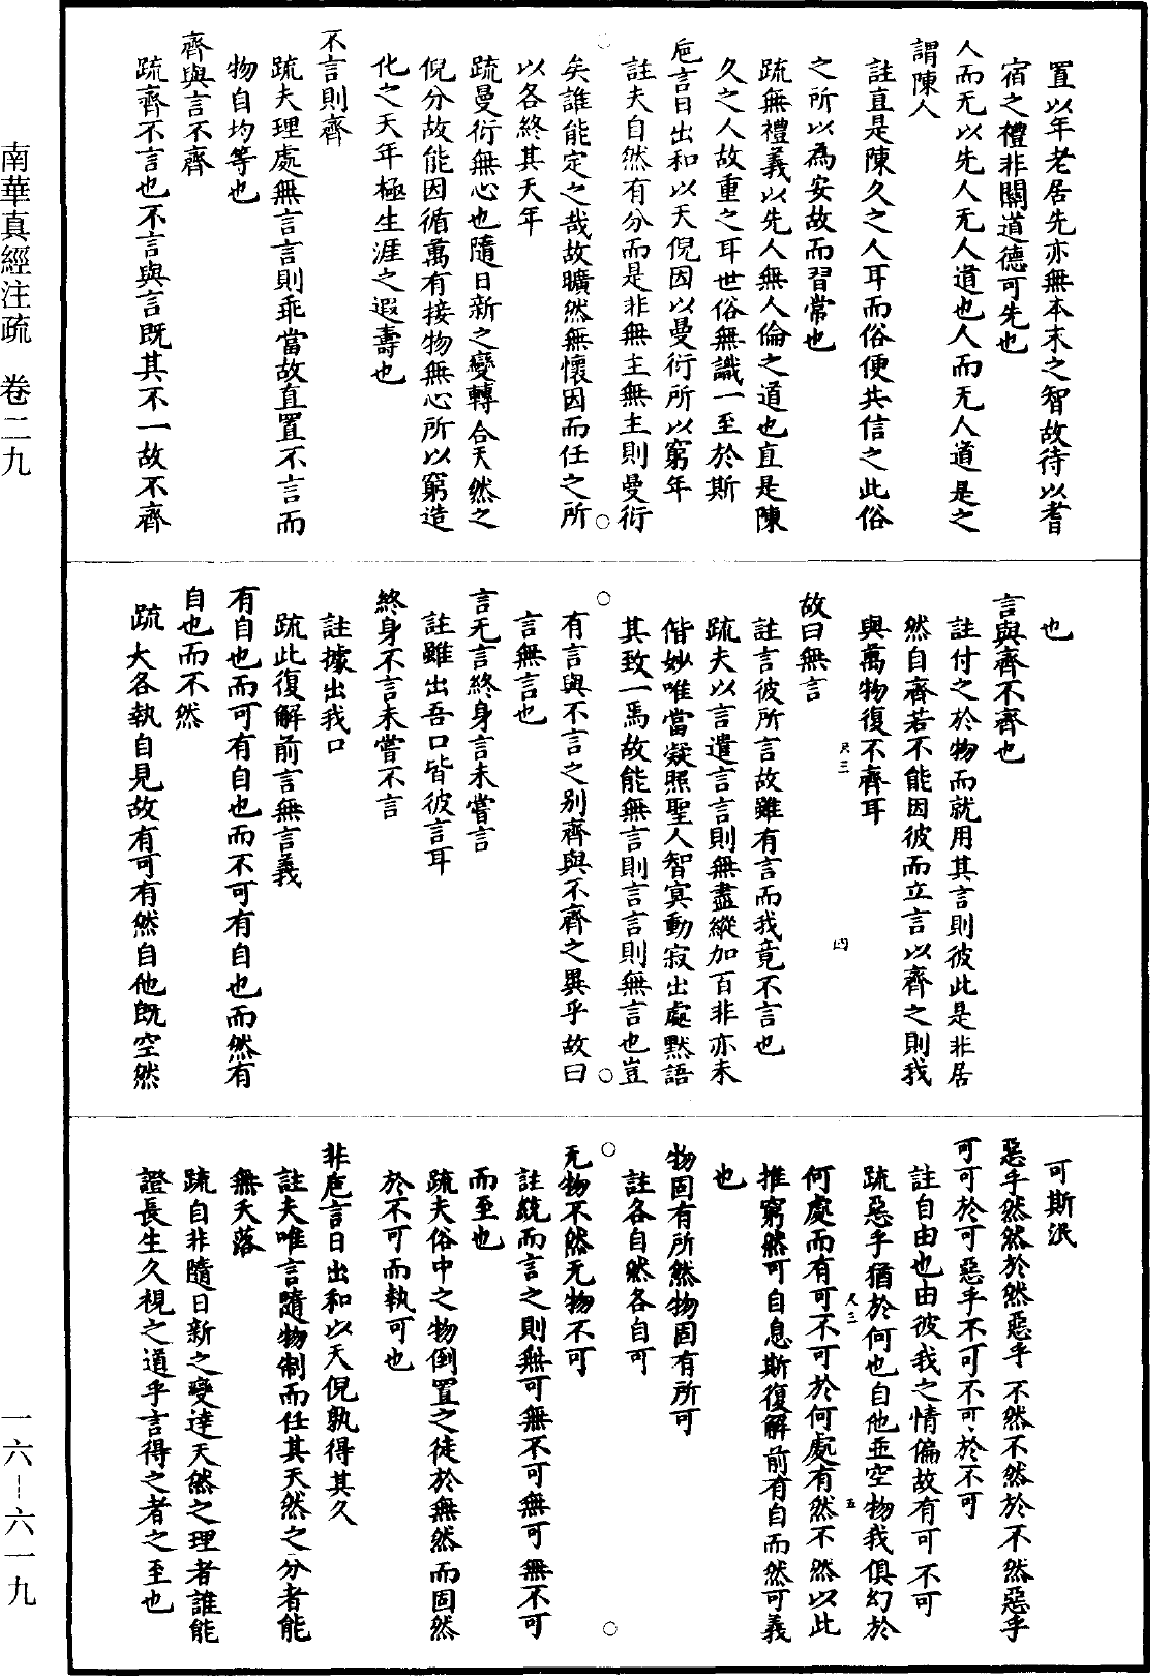 置以年老居先亦無本末之智故待以耆
宿之禮非關道德可先也
人而无以先人无人道也人而无人道是之
謂陳人
註直是陳久之人耳而俗便共信之此俗
之所以為安故而習常也
疏無禮義以先人無人倫之道也直是陳
久之人故重之耳世俗無識一至於斯
巵言日出和以天倪因以曼衍所以窮年
註夫自然有分而是非無主無主則曼衍
矣誰能定之哉故曠然無懷因而任之所
以各終其天年
疏曼衍無心也隨日新之變轉合天然之
倪分故能因循萬有接物無心所以窮造
化之天年極生涯之遐壽也
不言則齊
疏夫理處無言言則乖當故直置不言而
物自均等也
齊與言不齊
疏齊不言也不言與言既其不一故不齊
也
言與齊不齊也
註付之於物而就用其言則彼此是非居
然自齊若不能因彼而立言以齊之則我
與萬物復不齊耳
尺三
四
故曰無言
註言彼所言故雖有言而我竟不言也
疏夫以言遣言言則無盡縱加百非亦未
偕妙唯當凝照聖人智冥動寂出處默語
其致一焉故能無言則言言則無言也豈
有言與不言之別齊與不齊之異乎故曰
言無言也
言无言終身言未嘗言
註雖出吾口皆彼言耳
終身不言未嘗不言
註據出我口
疏此復解前言無言義
有自也而可有自也而不可有自也而然有
自也而不然
疏大各執自見故有可有然自他既空然
可斯泯
惡乎然然於然惡乎不然不然於不然惡乎
可可於可惡乎不可不可於不可
註自由也由彼我之情偏故有可不可
疏惡乎猶於何也自他並空物我俱幻於
尺三
五
何處而有可不可於何處有然不然以此
推窮然可自息斯復解前有自而然可義
也
物固有所然物固有所可
註各自然各自可
无物不然无物不可
註統而言之則無可無不可無可無不可
而至也
疏夫俗中之物倒置之徒於無然而固然
於不可而執可也
非巵言日出和以天倪孰得其久
註夫唯言隨物制而任其天然之分者能
無夭落
疏自非隨日新之變達天然之理者誰能
證長生久視之道乎言得之者之至也
南華真經注疏 卷二九
一六–六一九